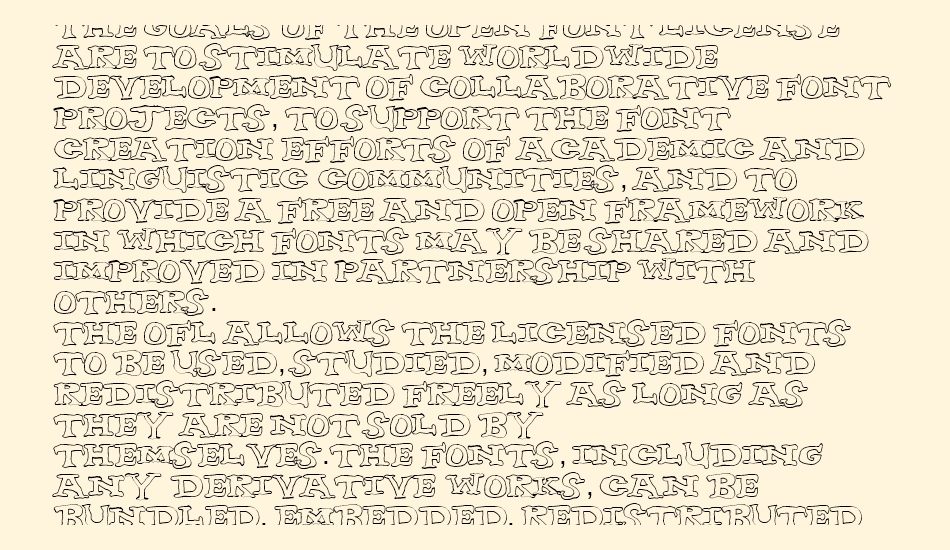 THE GOALS OF THE OPEN FONT LICENSE
ARE TO STIMULATE WORLDWIDE
DEVELOPMENT OF COLLABORATIVE FONT
PROJECTS, TO SUPPORT THE FONT
CREATION EFFORTS OF ACADEMIC AND
LINGUISTIC COMMUNITIES, AND TO
PROVIDE A FREE AND OPEN FRAMEWORK
IN WHICH FONTS MAY BE SHARED AND
IMPROVED IN PARTNERSHIP WITH
OTHERS.
THE OFL ALLOWS THE LICENSED FONTS
TO BE USED, STUDIED, MODIFIED AND
REDISTRIBUTED FREELY AS LONG AS
THEY ARE NOT SOLD BY
THEMSELVES. THE FONTS, INCLUDING
ANY DERIVATIVE WORKS, CAN BE
BUNDLED, EMBEDDED, REDISTRIBUTED